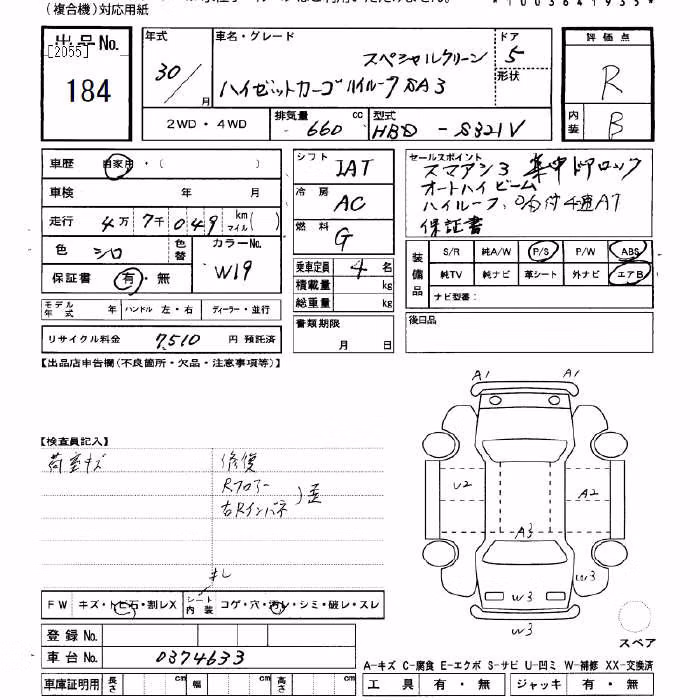 (複合機)対応用紙
*1003641935*
出品No.
[2055]
184
年式
30/
月
車名・グレード
スペシャルクリーン
ハイゼットカーゴ ハイルーフ SA3
ドア
5
形状
評価点
R
内装
B
2WD・4WD
排気量
660
cc
型式
HBD - S321V
車歴
自家用・( )
車検
年 月
走行
4万7千049
km
マイル
( )
色
シロ
色替
カラーNo.
W19
保証書
有・無
モデル年式
年
ハンドル 左・右
ディーラー・並行
リサイクル料金
7,510
円 預託済
シフト
IAT
冷房
AC
燃料
G
乗車定員
4 名
積載量
kg
総重量
kg
書類期限
月 日
セールスポイント
スマアシ3 集中ドアロック
オートハイビーム
ハイルーフ
4速AT
保証書
装備品
S/R 純A/W P/S P/W ABS
純TV 純ナビ 革シート 外ナビ エアB
ナビ型番:
後日品
【出品店申告欄(不良箇所・欠品・注意事項等)】
【検査員記入】
荷室キズ
修復
Rフロアー
右Rインパネ
歪
A1 A1
U2 A2
A3
W3 W3
W3
FW キズ・トビ石・割レX
シート内装
コゲ・穴・汚レ・シミ・破レ・スレ
登録No.
車台No.
0374633
車庫証明用
長さ cm 幅 cm 高さ cm
スペア
A-キズ C-腐食 E-エクボ S-サビ U-凹ミ W-補修 XX-交換済
工具 有・無 ジャッキ 有・無